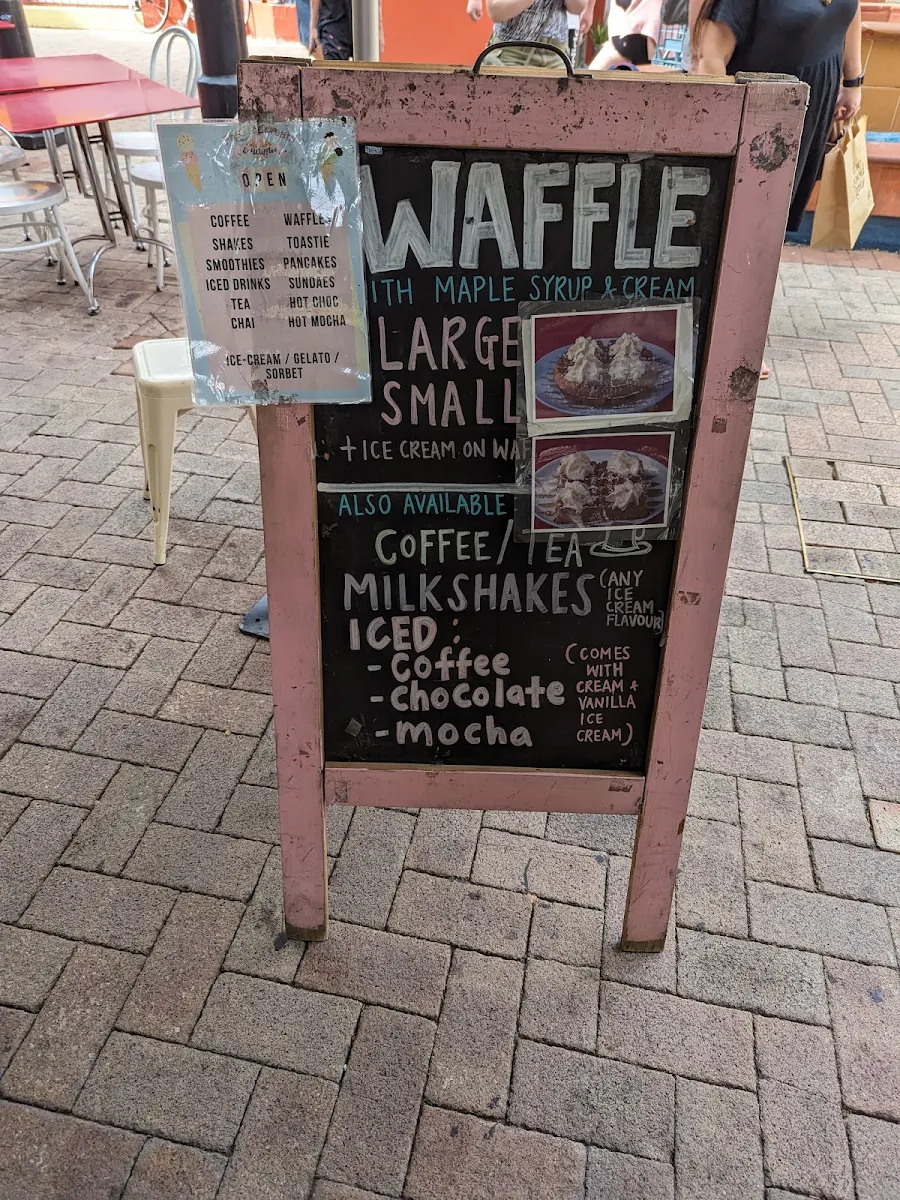 OPEN
COFFEE WAFFLES
SHAKES TOASTIE
SMOOTHIES PANCAKES
ICED DRINKS SUNDAES
TEA HOT CHOC
CHAI HOT MOCHA
ICE-CREAM / GELATO /
SORBET
WAFFLE
ITH MAPLE SYRUP & CREAM
LARGE
SMALL
+ ICE CREAM ON WAF
ALSO AVAILABLE
COFFEE/TEA
MILKSHAKES (ANY
ICE
CREAM
FLAVOUR)
ICED:
- coffee
- chocolate
- mocha
(COMES
WITH
CREAM +
VANILLA
ICE
CREAM)